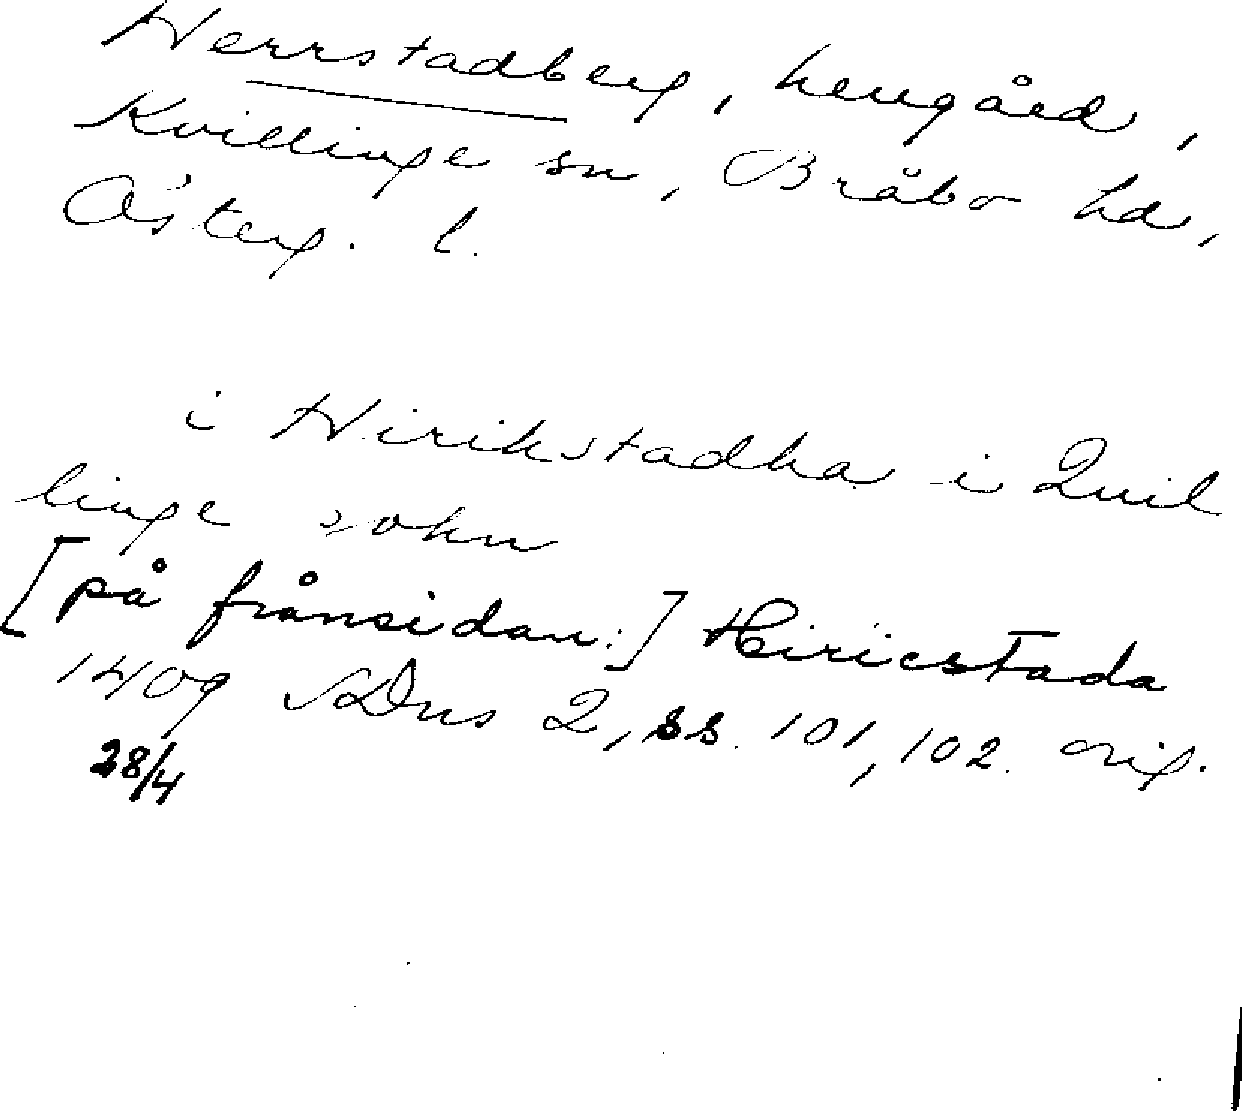 Herrstadberg, herrgård,
Kvillinge sn, Bråbo hd,
Österg. l.
i Hirikstadha i Quil
linge sokn
[på frånsidan:] Hiricstada
1409 SDns 2, ss. 101, 102. orig.
28/4